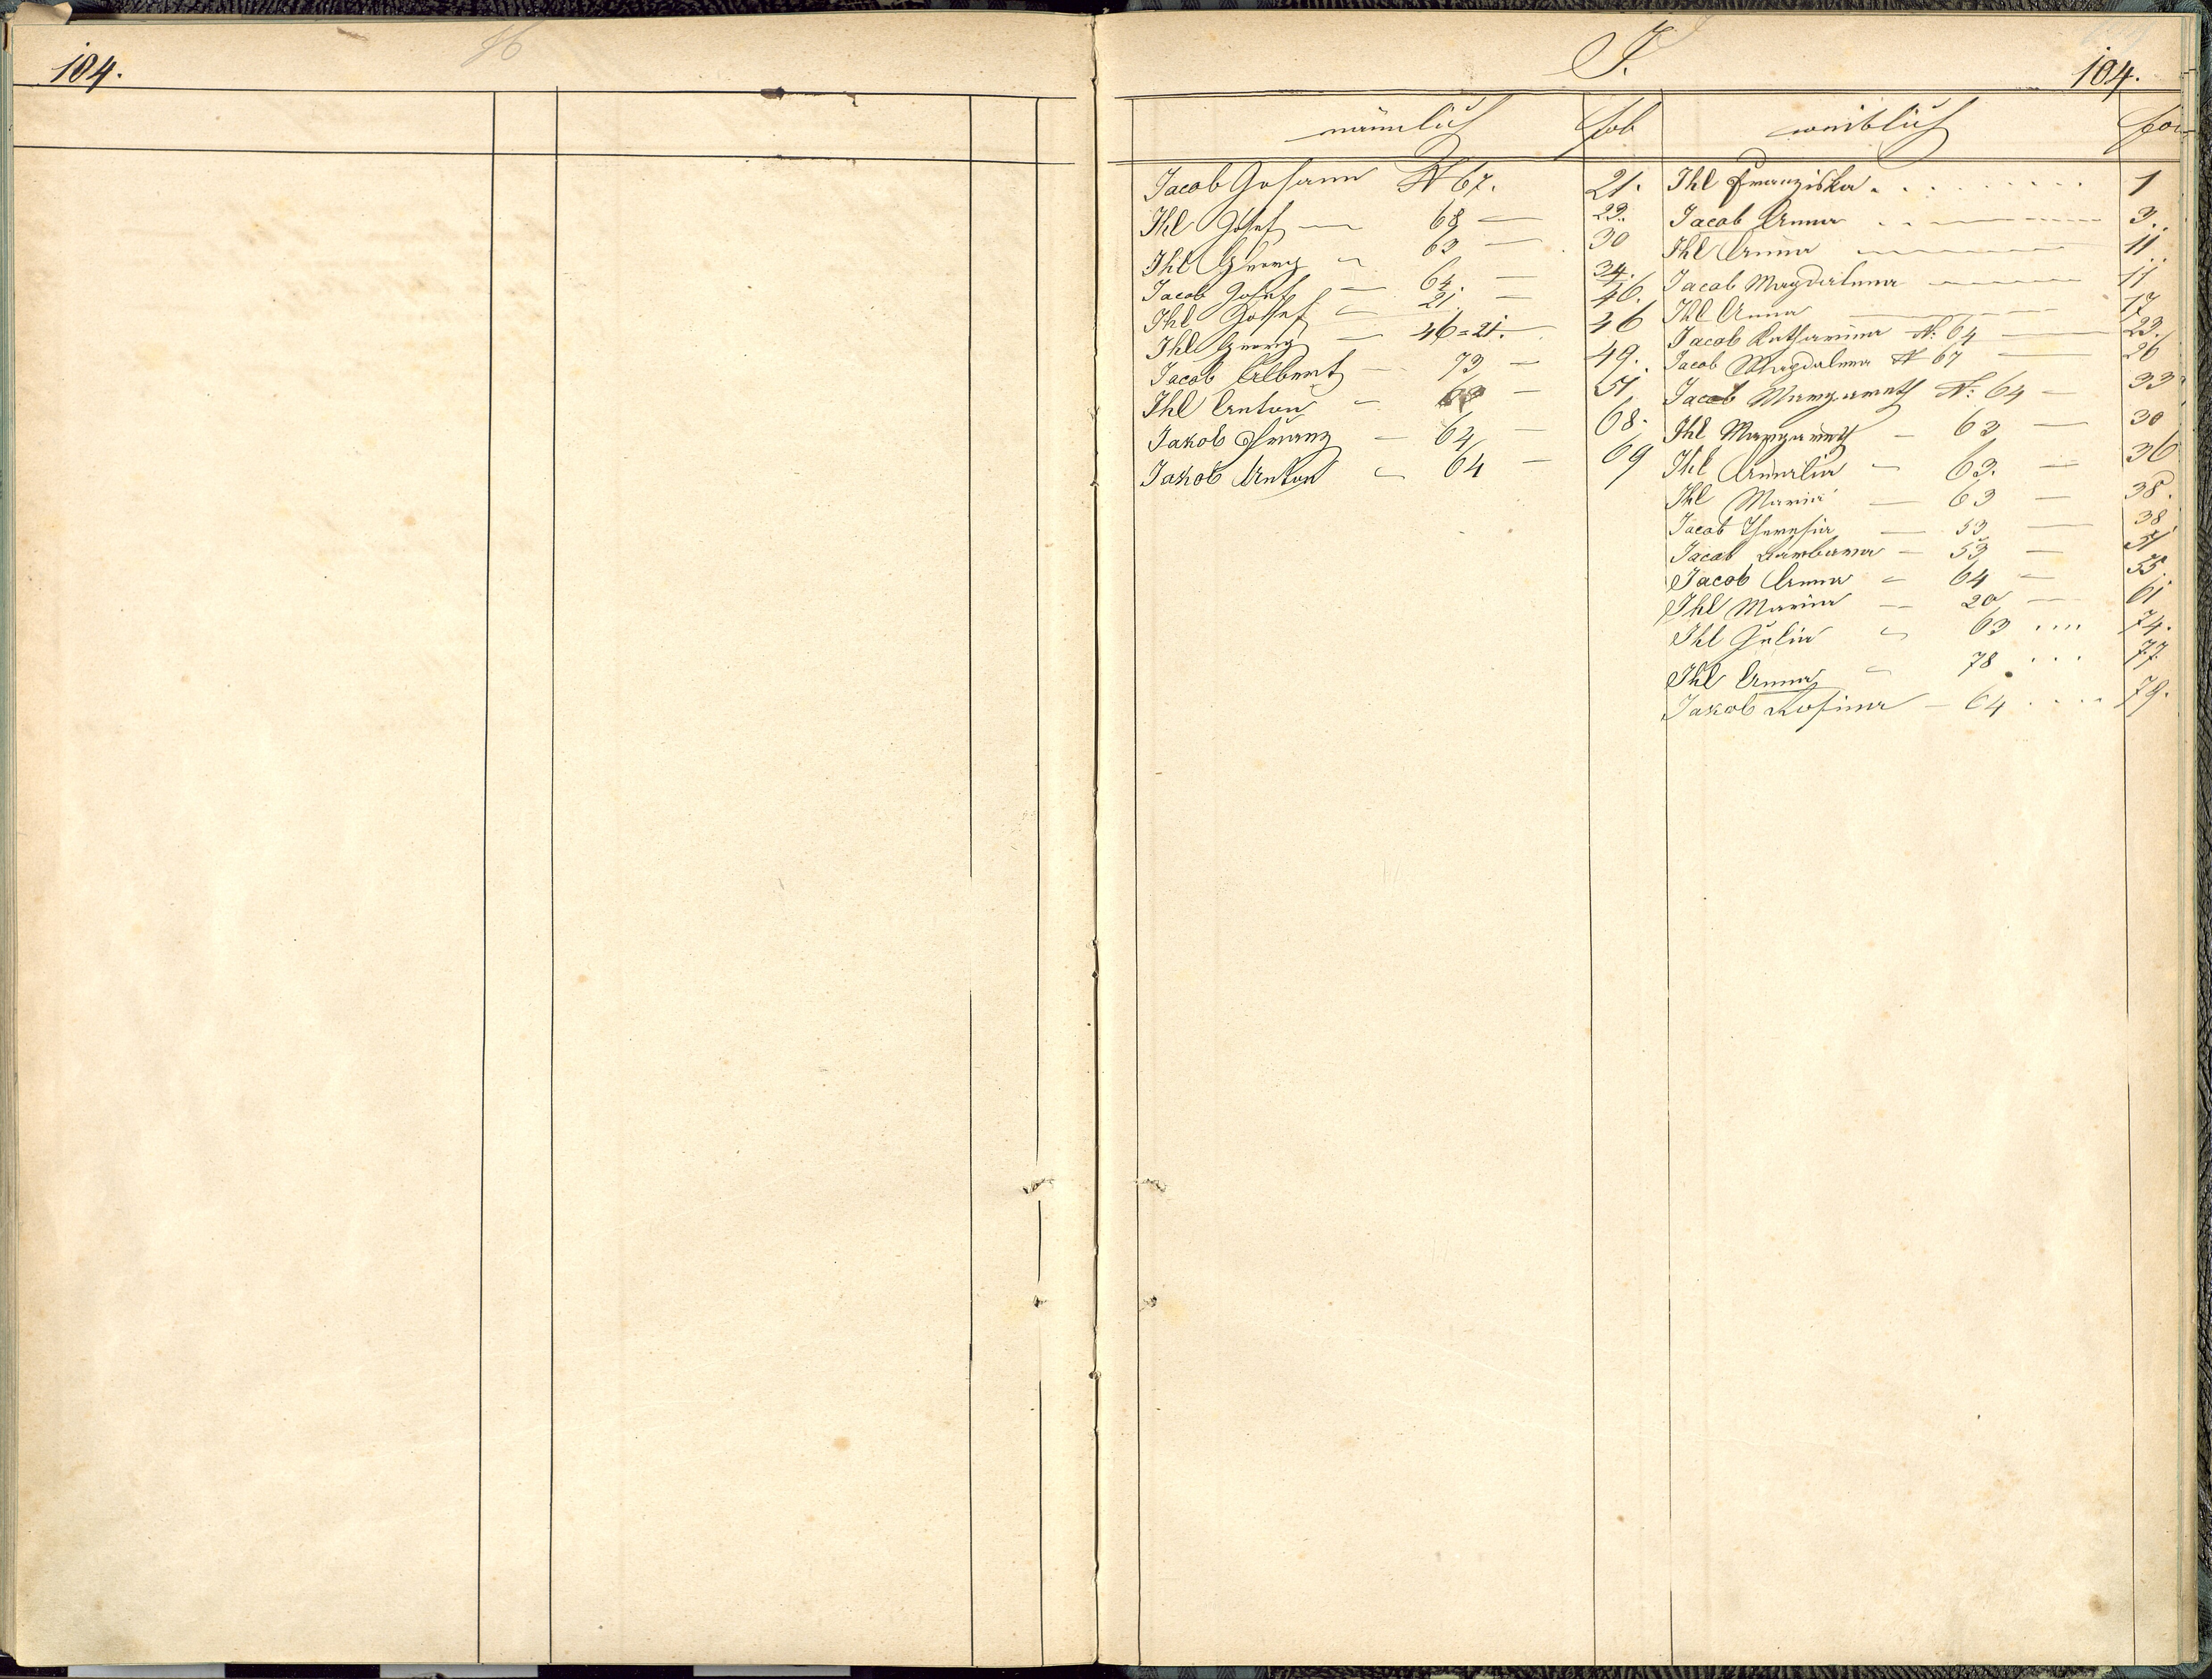 104.
H
J.
104.
männlich fol weiblich fol
Jacob Johann N 67. 21.
Ihl Josef — 68 — 23.
Ihl Georg — 63 — 30
Jacob Josef — 64. — 34.
Ihl Josef — 21. — 46.
Ihl Georg — 46=21. 46
Jacob Albert — 73 — 49.
Ihl Anton — 63 — 51
Jakob Franz — 64 — 68.
Jakob Anton — 64 — 69
Ihl Franziska . . . . . . . . 1
Jacob Anna . . — 3.
Ihl Anna — 11
Jacob Magdalena — 11
Ihl Anna — 17
Jacob Katharina N: 64 — 23.
Jacob Magdalena N 67 — 26
Jacob Margareth N: 64 — 33
Ihl Margareth — 63 — 30
Ihl Amalia — 63. — 36
Ihl Maria — 63 — 38.
Jacob Theresia — 53 — 38
Jacob Barbara — 53 — 51
Jacob Anna — 64 — 55.
Ihl Maria — 20 — 61
Ihl Julia — 63 .... 74.
Ihl Anna — 78 . . . 77.
Jakob Rosina — 64 . . . . 79.